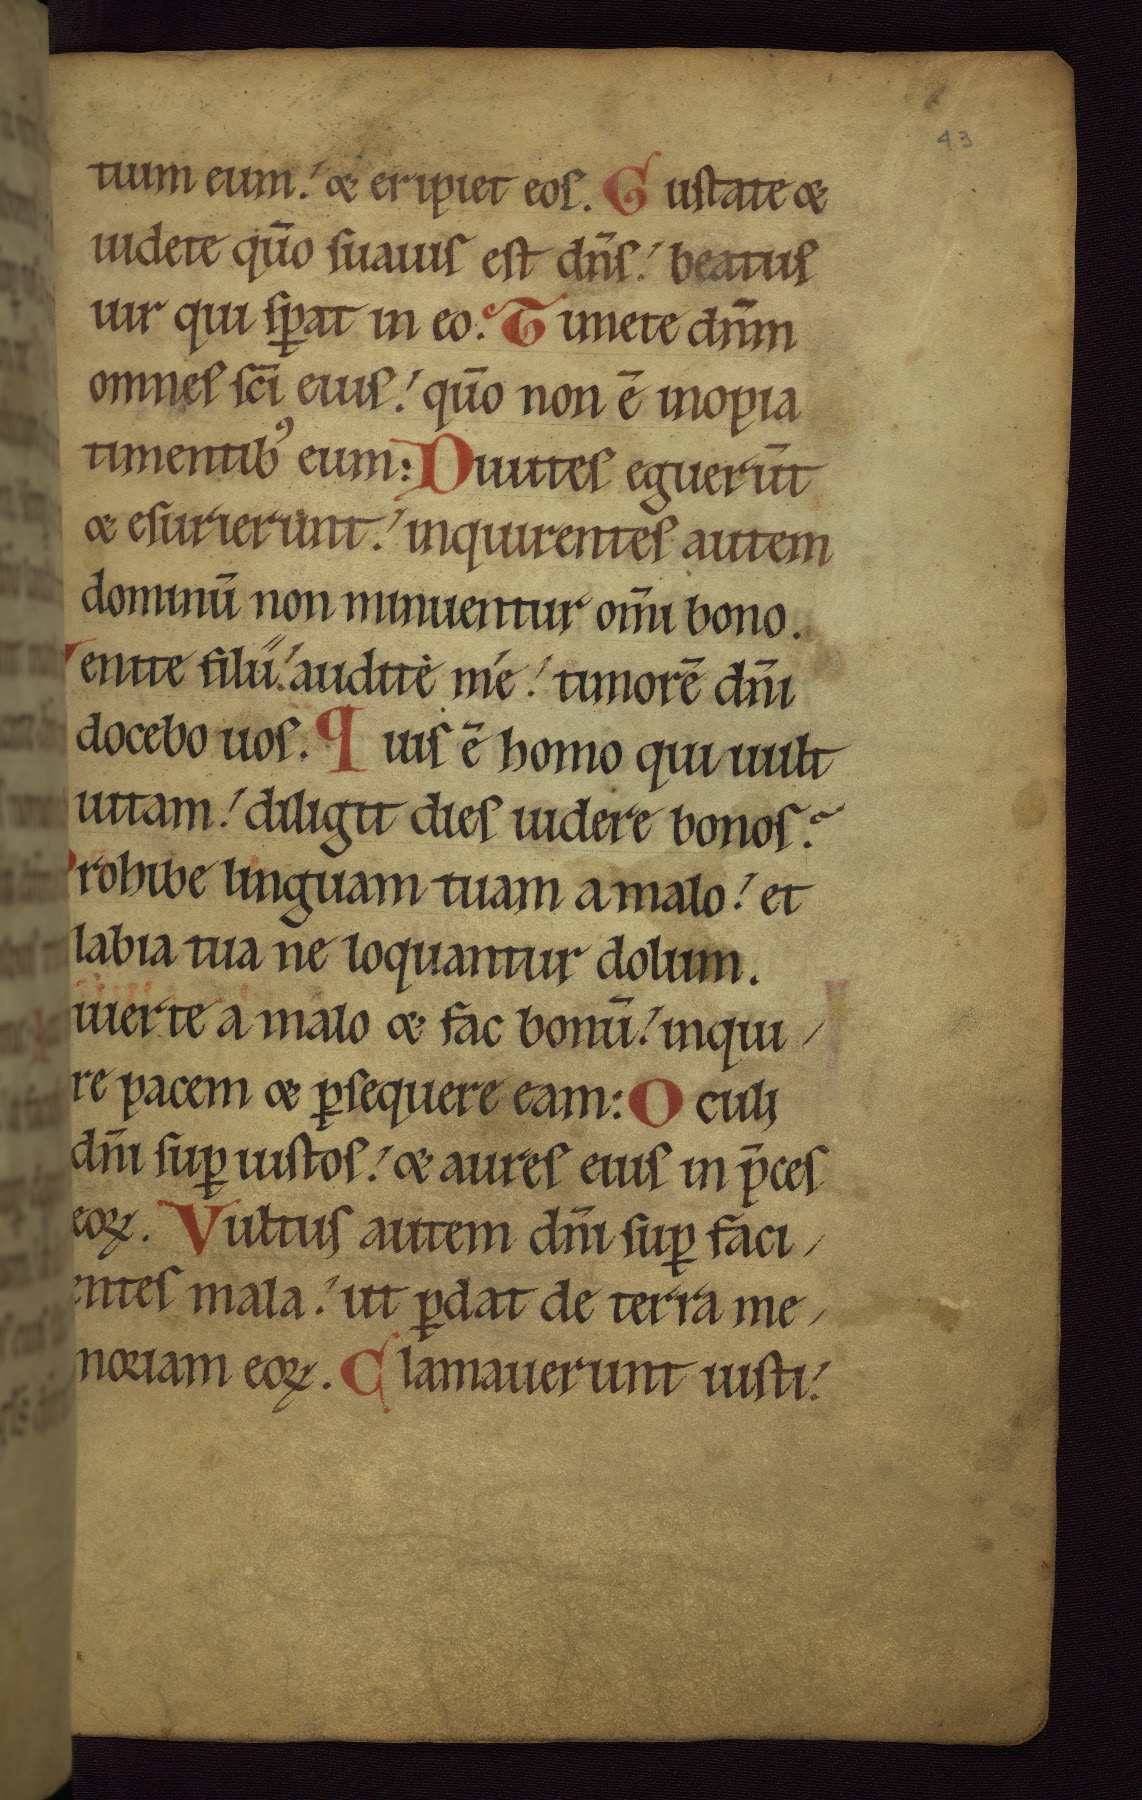 43
tium eum. & eripiet eos. Gustate &
uidete qūo suauis est dn̄s. beatus
uir qui sꝑat in eo. Timete dn̄m
omnes sc̄i eius. qūo non ē inopia
timentibꝰ eum: Diuites eguerūt
& esurierunt. inquirentes autem
dominū non minuentur om̄i bono.
Venite filii. audite me. timorē dn̄i
docebo uos. Quis ē homo qui uult
uitam. diligit dies uidere bonos.
Prohibe linguam tuam a malo. et
labia tua ne loquantur dolum.
iuerte a malo & fac bonū. inqui
re pacem & ꝑsequere eam: Oculi
dn̄i suꝑ iustos. & aures eius in p̄ces
eoꝝ. Vultus autem dn̄i suꝑ faci
entes mala. ut ꝑdat de terra me
moriam eoꝝ. Clamauerunt iusti.